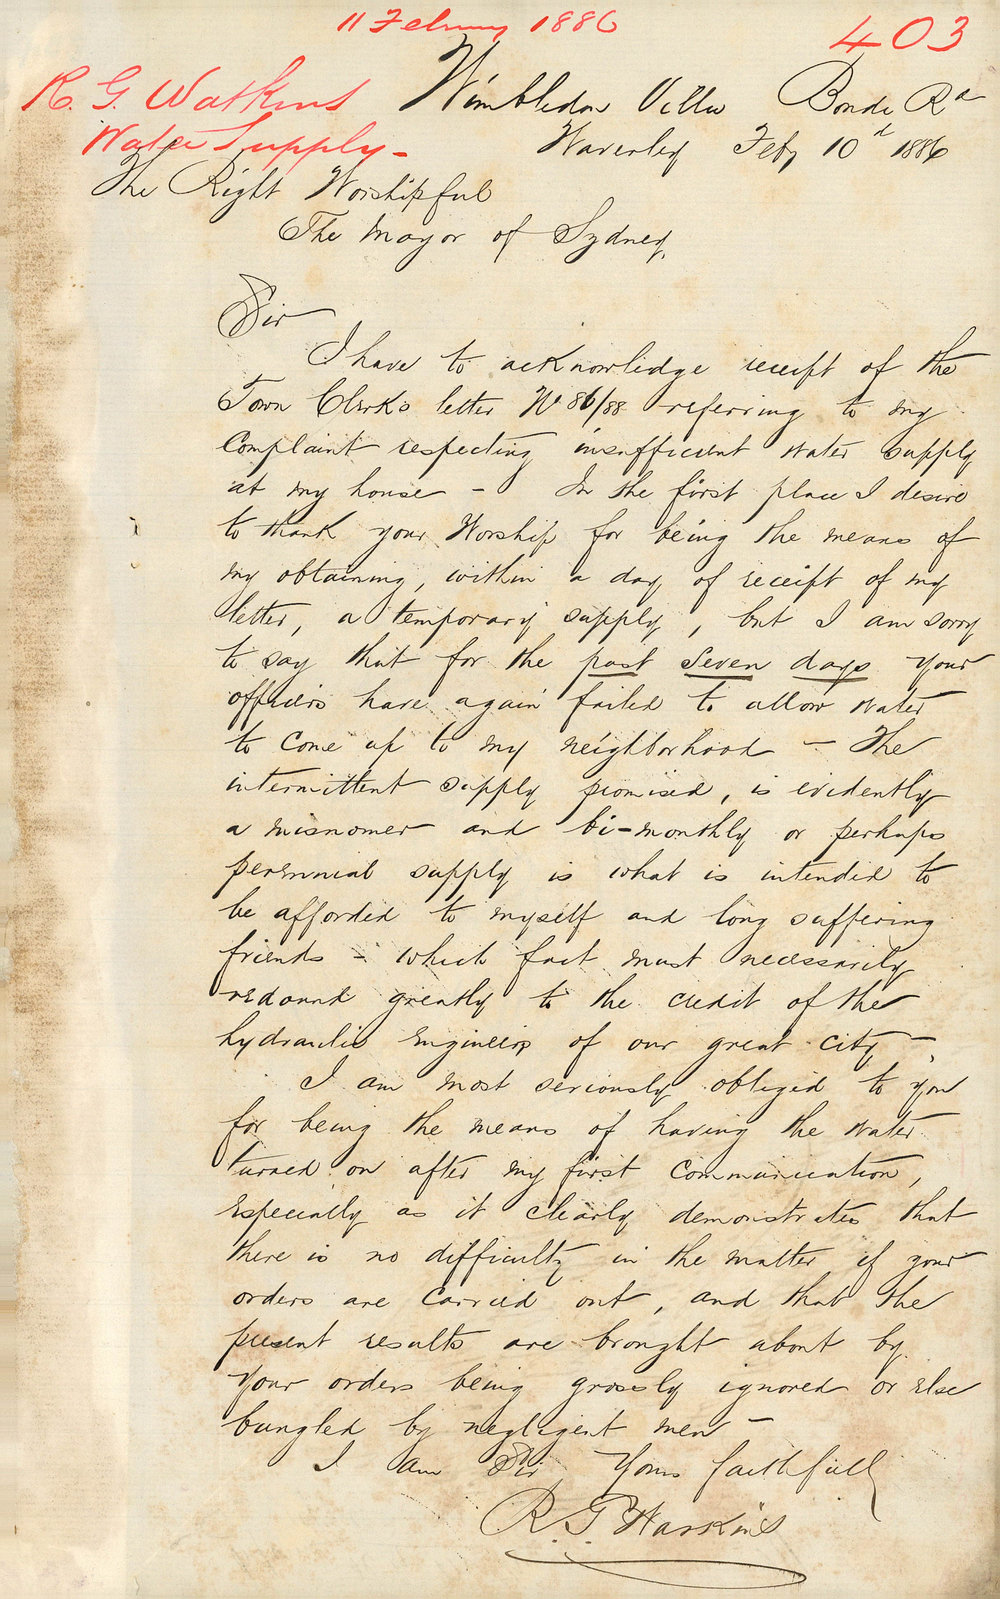 11 February 1886
403
R. G. Watkins
Water Supply -
Wimbledon Villa Bondi Rd
Waverley Feby 10th 1886
The Right Worshipful
The Mayor of Sydney,
Sir
I have to acknowledge receipt of the
Town Clerk's letter W 86/88 referring to my
complaint respecting insufficient water supply
at my house - In the first place I desire
to thank your Worship for being the means of
my obtaining, within a day of receipt of my
letter, a temporary supply, but I am sorry
to say that for the past seven days your
officers have again failed to allow water
to come up to my neighborhood - The
intermittent supply promised, is evidently
a misnomer and bi-monthly or perhaps
perennial supply is what is intended to
be afforded to myself and long suffering
friends - which fact must necessarily
redound greatly to the credit of the
hydraulic engineers of our great city -
I am most seriously obliged to you
for being the means of having the water
turned on after my first communication,
especially as it clearly demonstrates that
there is no difficulty in the matter if your
orders are carried out, and that the
present results are brought about by
your orders being grossly ignored or else
bungled by negligent men -
I am Sir Yours faithfully
R. G. Watkins